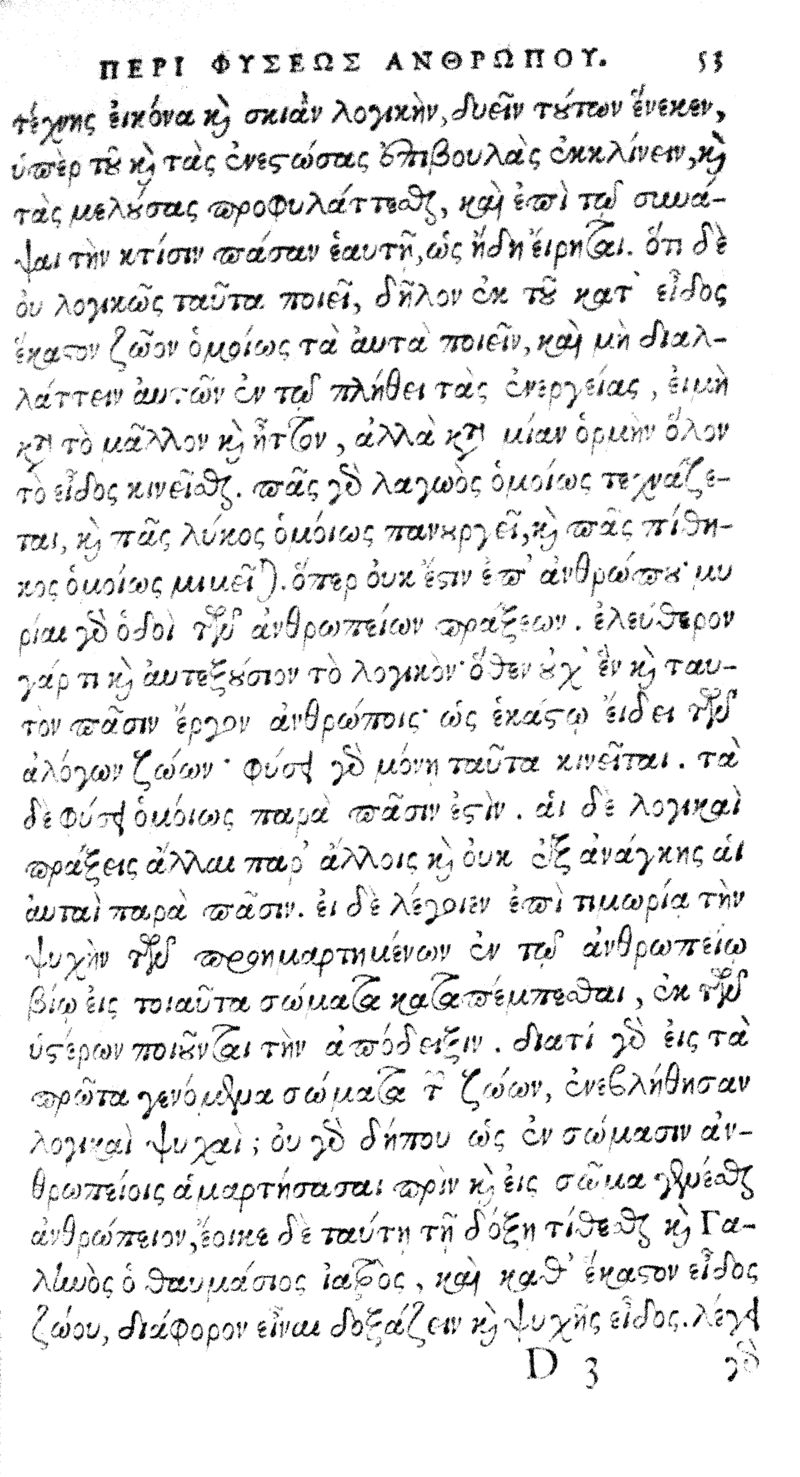 ΠΕΡΙ ΦΥΣΕΩΣ ΑΝΘΡΩΠΟΥ. 53
τέχνης εἰκόνα κὶ σκιὰν λογικὴν, δυεῖν τούτων ἕνεκεν,
ὑπὲρ τοῦ κὶ τὰς ἐνεστώσας ἐπιβουλὰς ἐκκλίνειν, κὶ
τὰς μελούσας προφυλάττεσθαι, καὶ ἐπὶ τῷ συνά-
ψαι τὴν κτίσιν πᾶσαν ἑαυτῇ, ὡς ἤδη εἴρηται. ὅτι δὲ
οὐ λογικῶς ταῦτα ποιεῖ, δῆλον ἐκ τοῦ κατ' εἶδος
ἕκαστον ζῶον ὁμοίως τὰ ἀυτὰ ποιεῖν, καὶ μὴ διαλ-
λάττειν ἀυτῶν ἐν τῷ πλήθει τὰς ἐνεργείας, ἐιμὴ
κτ τὸ μᾶλλον κὶ ἧττον, ἀλλὰ κτ μίαν ὁρμὴν ὅλον
τὸ εἶδος κινεῖσθαι. πᾶς γὰρ λαγωὸς ὁμοίως τεχνάζε-
ται, κὶ πᾶς λύκος ὁμόιως πανουργεῖ, κὶ πᾶς πίθη-
κος ὁμοίως μιμεῖται. ὅπερ ὀυκ ἔστιν ἐπ' ἀνθρώπου· μυ
ρίαι γὰρ ὁδοὶ τῶν ἀνθρωπείων πράξεων. ἐλεύθερον
γάρ τι κὶ ἀυτεξούσιον τὸ λογικὸν· ὅθεν οὐχ' ἓν κὶ ταυ-
τὸν πᾶσιν ἔργον ἀνθρώποις· ὡς ἑκάστῳ ἔιδει τῶν
ἀλόγων ζώων· φύσει γὰρ μόνη ταῦτα κινεῖται. τὰ
δὲ φύσει ὁμόιως παρὰ πᾶσιν ἐστὶν. ἁι δὲ λογικαὶ
πράξεις ἄλλαι παρ' ἄλλοις κὶ ὀυκ ἐξ ἀνάγκης ἁι
ἀυταὶ παρὰ πᾶσιν. ἐι δὲ λέγοιεν ἐπὶ τιμωρία τὴν
ψυχὴν τῶν προημαρτημένων ἐν τῷ ἀνθρωπείῳ
βίῳ ἐις τοιαῦτα σώματα καταπέμπεσθαι, ἐκ τῶν
ὑστέρων ποιοῦνται τὴν ἀπόδειξιν. διατί γὰρ ἐις τὰ
πρῶτα γενόμενα σώματα τῶν ζώων, ἐνεβλήθησαν
λογικαὶ ψυχαὶ; ὀυ γὰρ δήπου ὡς ἐν σώμασιν ἀν-
θρωπείοις ἁμαρτήσασαι πρὶν κὶ ἐις σῶμα γενέσθαι
ἀνθρώπειον, ἔοικε δὲ ταύτη τῇ δόξη τίθεσθαι κὶ Γα-
ληνὸς ὁ θαυμάσιος ἰατρὸς, καὶ καθ' ἕκαστον εἶδος
ζώου, διάφορον εἶναι δοξάζειν κὶ ψυχῆς εἶδος. λέγει
D 3 γὰρ